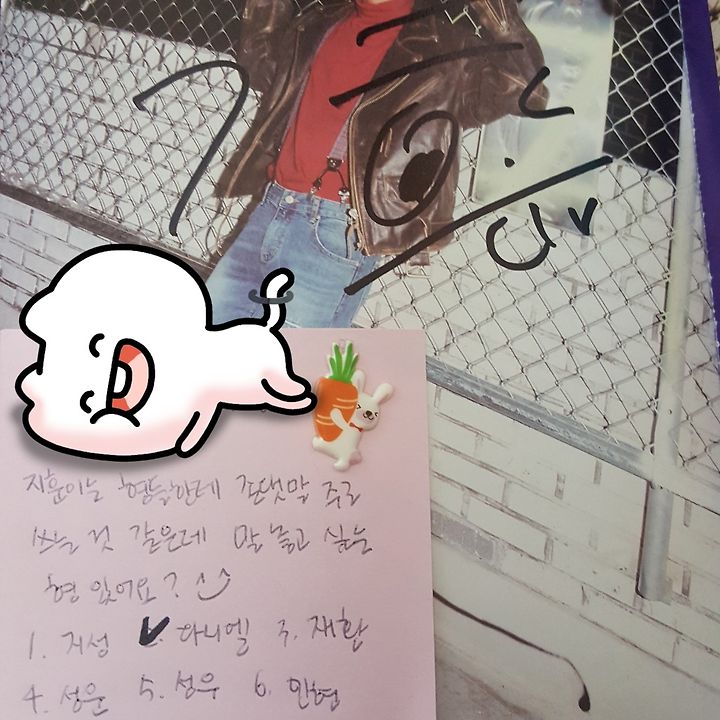 지훈이는 형들한테 존댓말 주로
쓰는 것 같은데 말 놓고 싶은
형 있어요?
1. 지성 2. 다니엘 3. 재환
4. 성운 5. 성우 6. 민현